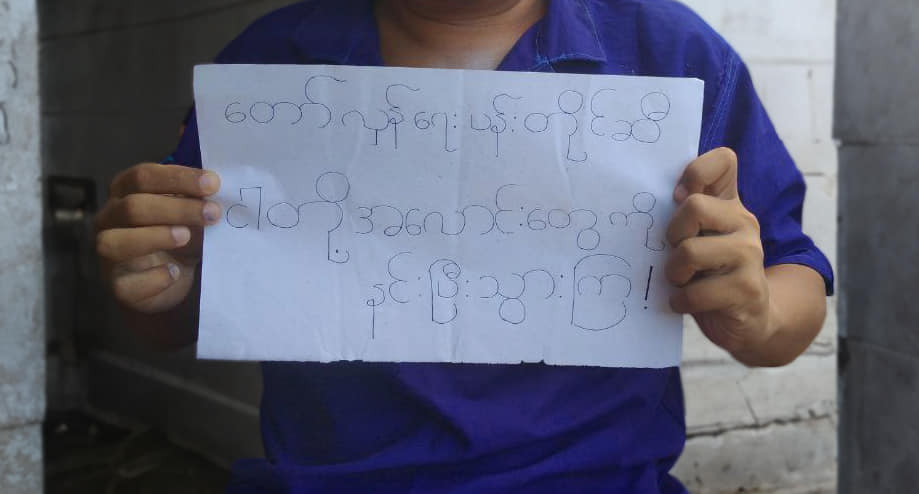 တော်လှန်ရေးပန်းတိုင်ဆီ
ငါတို့အလောင်းတွေကို
နင်းပြီးသွားကြ!